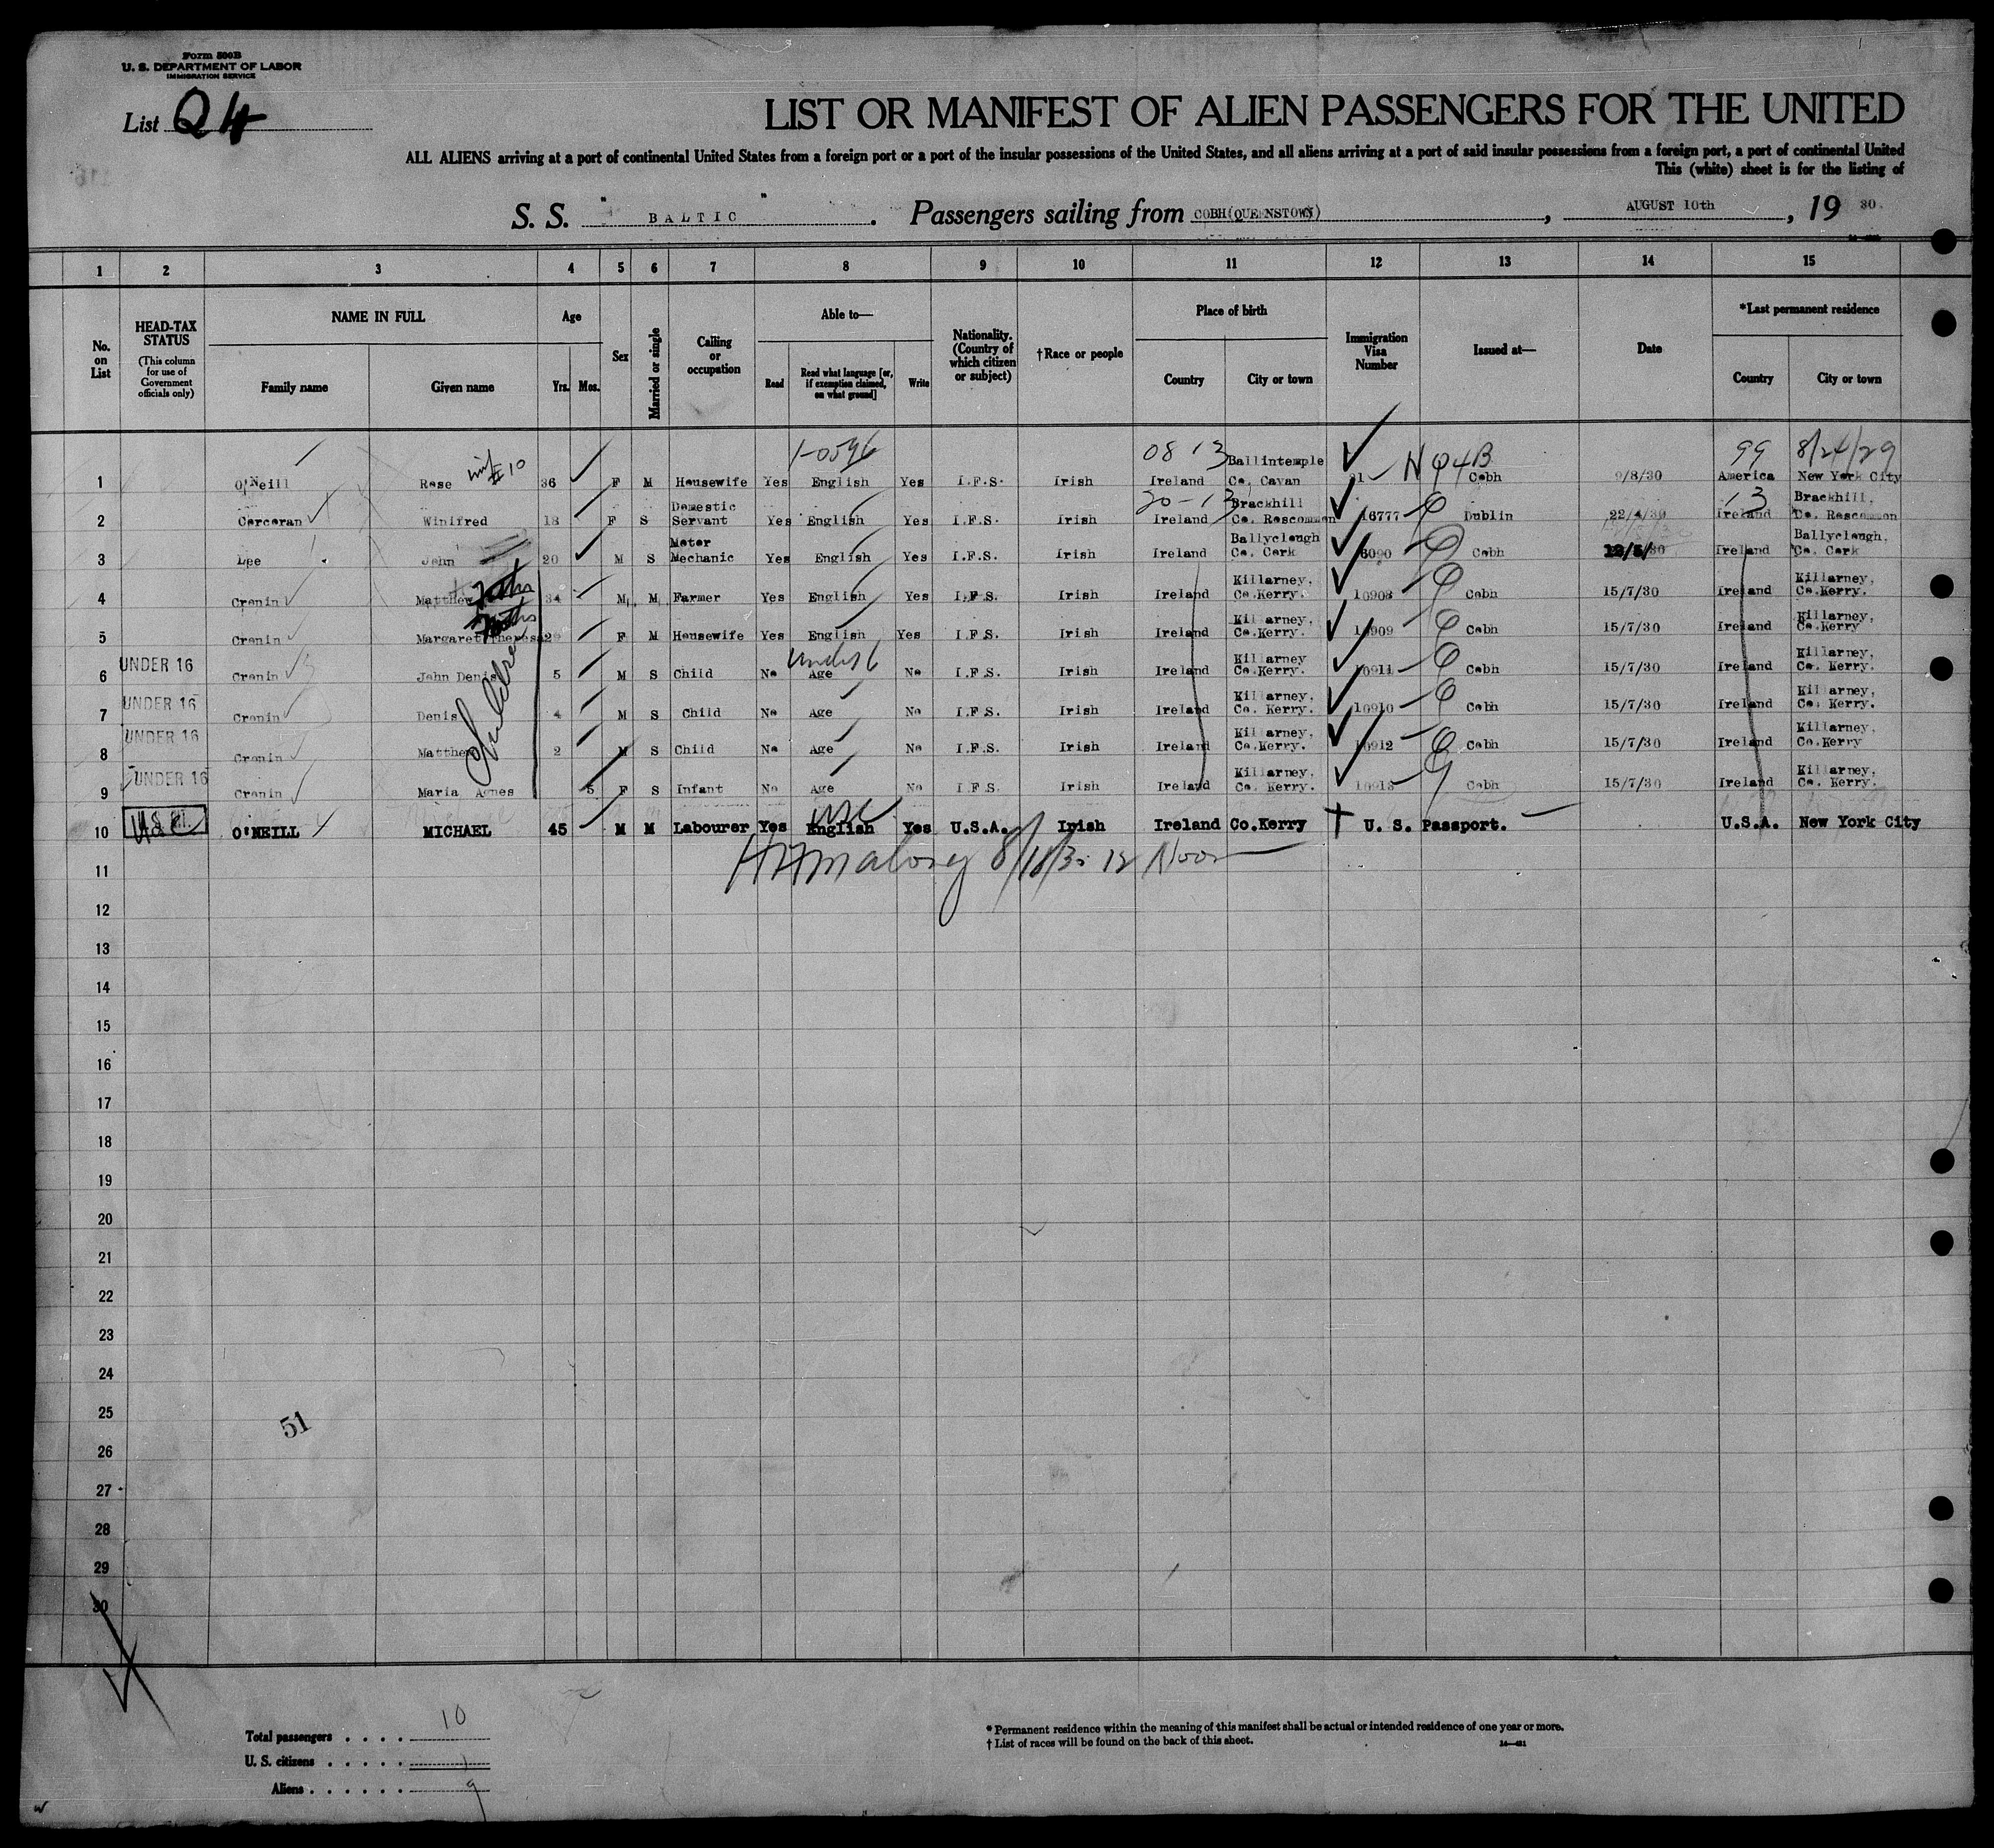 Form 500B
U. S. DEPARTMENT OF LABOR
IMMIGRATION SERVICE
List Q4
LIST OR MANIFEST OF ALIEN PASSENGERS FOR THE UNITED
ALL ALIENS arriving at a port of continental United States from a foreign port or a port of the insular possessions of the United States, and all aliens arriving at a port of said insular possessions from a foreign port, a port of continental United
This (white) sheet is for the listing of
S. S. " BALTIC " . Passengers sailing from COBH(QUEENSTOWN) , AUGUST 10th , 19 30.
1 2 3 4 5 6 7 8 9 10 11 12 13 14 15
No. on List
HEAD-TAX STATUS (This column for use of Government officials only)
NAME IN FULL Family name Given name
Age Yrs. Mos.
Sex
Married or single
Calling or occupation
Able to— Read Read what language [or, if exemption claimed, on what ground] Write
Nationality. (Country of which citizen or subject)
†Race or people
Place of birth Country City or town
Immigration Visa Number
Issued at—
Date
*Last permanent residence Country City or town
1-0596 08 13 99 8/24/29
1 O'Neill Rose 36 F M Housewife Yes English Yes I.F.S. Irish Ireland Ballintemple Co. Cavan 31 N Q4B Cobh 9/8/30 America New York City
20-13 13
2 Corcoran Winifred 18 F S Domestic Servant Yes English Yes I.F.S. Irish Ireland Brackhill Co. Roscommon 16777 Dublin 22/4/30 Ireland Brackhill, Co. Roscommon
3 Lee John 20 M S Motor Mechanic Yes English Yes I.F.S. Irish Ireland Ballyclough Co. Cork 6090 Cobh Ireland Ballyclough, Co. Cork
4 Cronin Matthew 34 M M Farmer Yes English Yes I.F.S. Irish Ireland Killarney, Co.Kerry. 10908 Cobh 15/7/30 Ireland Killarney, Co.Kerry.
5 Cronin Margaret Theresa 29 F M Housewife Yes English Yes I.F.S. Irish Ireland Killarney, Co.Kerry. 10909 Cobh 15/7/30 Ireland Killarney, Co.Kerry
Children
Under 16
UNDER 16
6 Cronin John Denis 5 M S Child No Age No I.F.S. Irish Ireland Killarney Co.Kerry. 10911 Cobh 15/7/30 Ireland Killarney, Co. Kerry.
UNDER 16
7 Cronin Denis 4 M S Child No Age No I.F.S. Irish Ireland Killarney, Co. Kerry. 10910 Cobh 15/7/30 Ireland Killarney, Co. Kerry.
UNDER 16
8 Cronin Matthew 2 M S Child No Age No I.F.S. Irish Ireland Killarney, Co.Kerry. 10912 Cobh 15/7/30 Ireland Killarney, Co.Kerry
UNDER 16
9 Cronin Maria Agnes 5 F S Infant No Age No I.F.S. Irish Ireland Killarney, Co. Kerry. 10913 Cobh 15/7/30 Ireland Killarney, Co. Kerry.
USC
10 O'NEILL MICHAEL 45 M M Labourer Yes English Yes U.S.A. Irish Ireland Co.Kerry U. S. Passport. U.S.A. New York City
8/18/30 12 Noon
11
12
13
14
15
16
17
18
19
20
21
22
23
24
25
51
26
27
28
29
30
Total passengers . . . . 10
U. S. citizens . . . . . 1
Aliens . . . . . . 9
* Permanent residence within the meaning of this manifest shall be actual or intended residence of one year or more.
† List of races will be found on the back of this sheet.